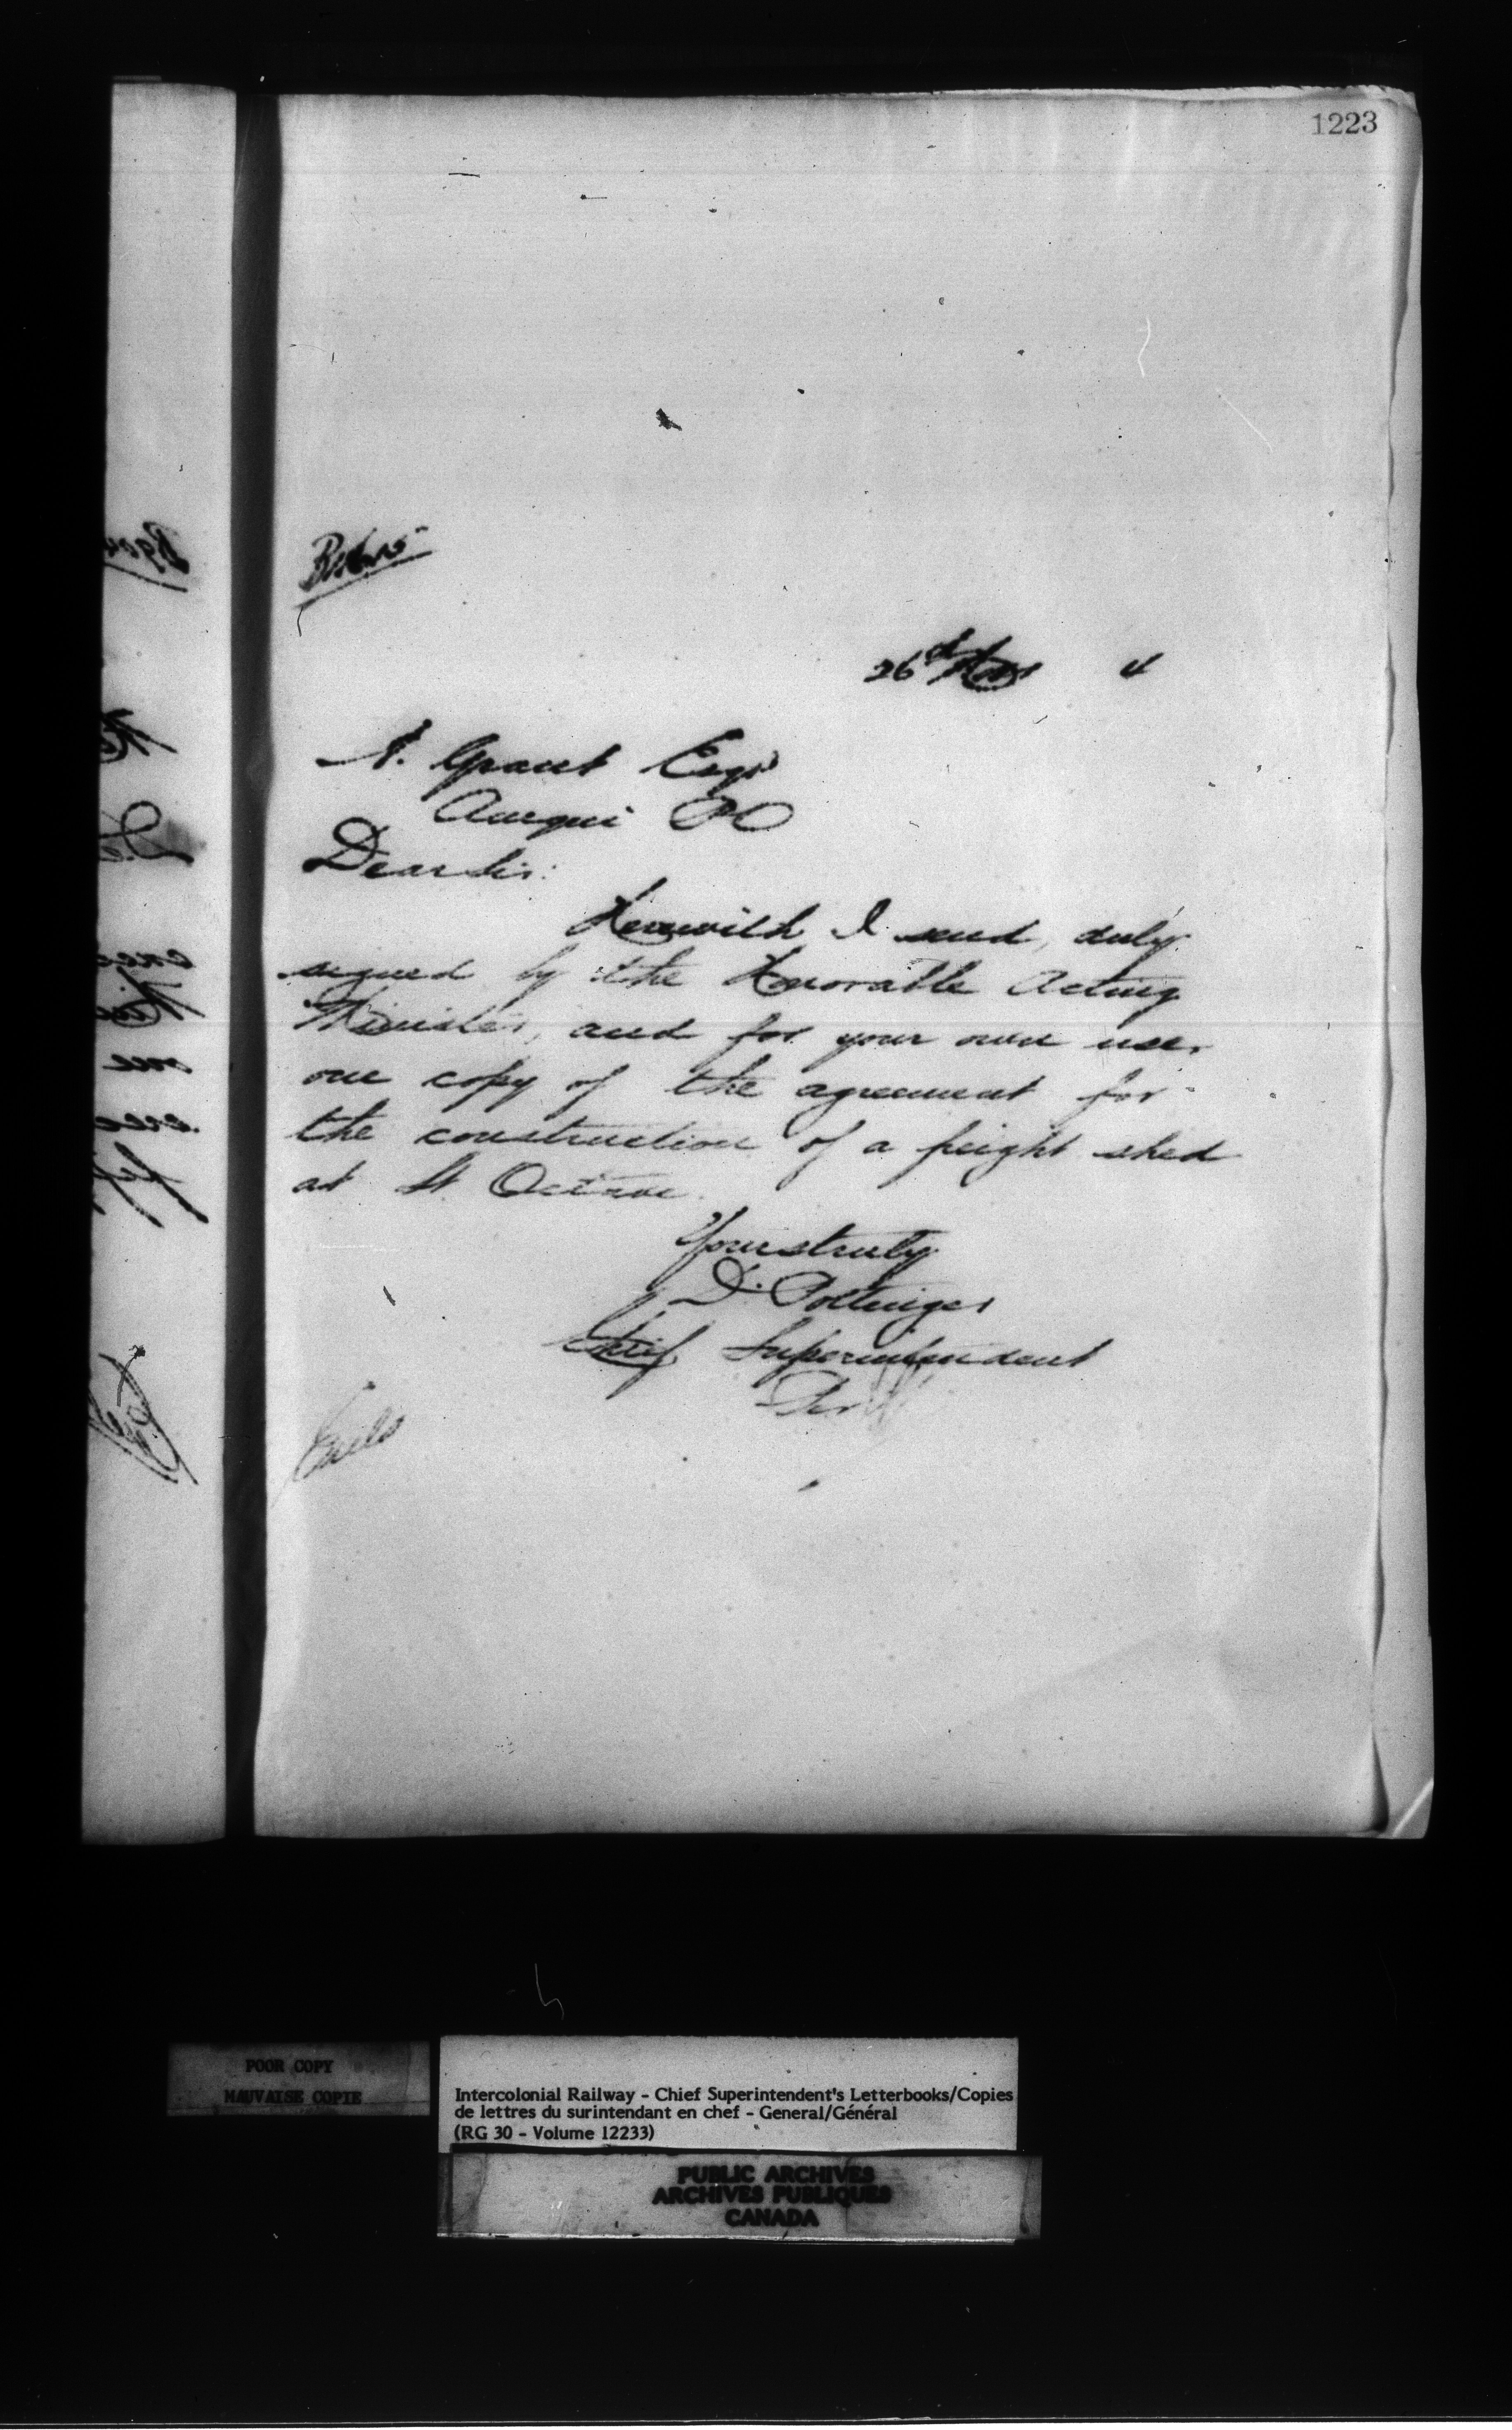 1223
26th Nov 4
A. Grant Esqr
Amqui PQ
Dear Sir:
Herewith I send, duly
signed by the Honorable Acting
Minister, and for your own use,
one copy of the agreement for
the construction of a freight shed
at St Octave.
Yours truly
D. Pottinger
Chief Superintendent
Per
Encls
POOR COPY
MAUVAISE COPIE
Intercolonial Railway - Chief Superintendent's Letterbooks/Copies
de lettres du surintendant en chef - General/Général
(RG 30 - Volume 12233)
PUBLIC ARCHIVES
ARCHIVES PUBLIQUES
CANADA